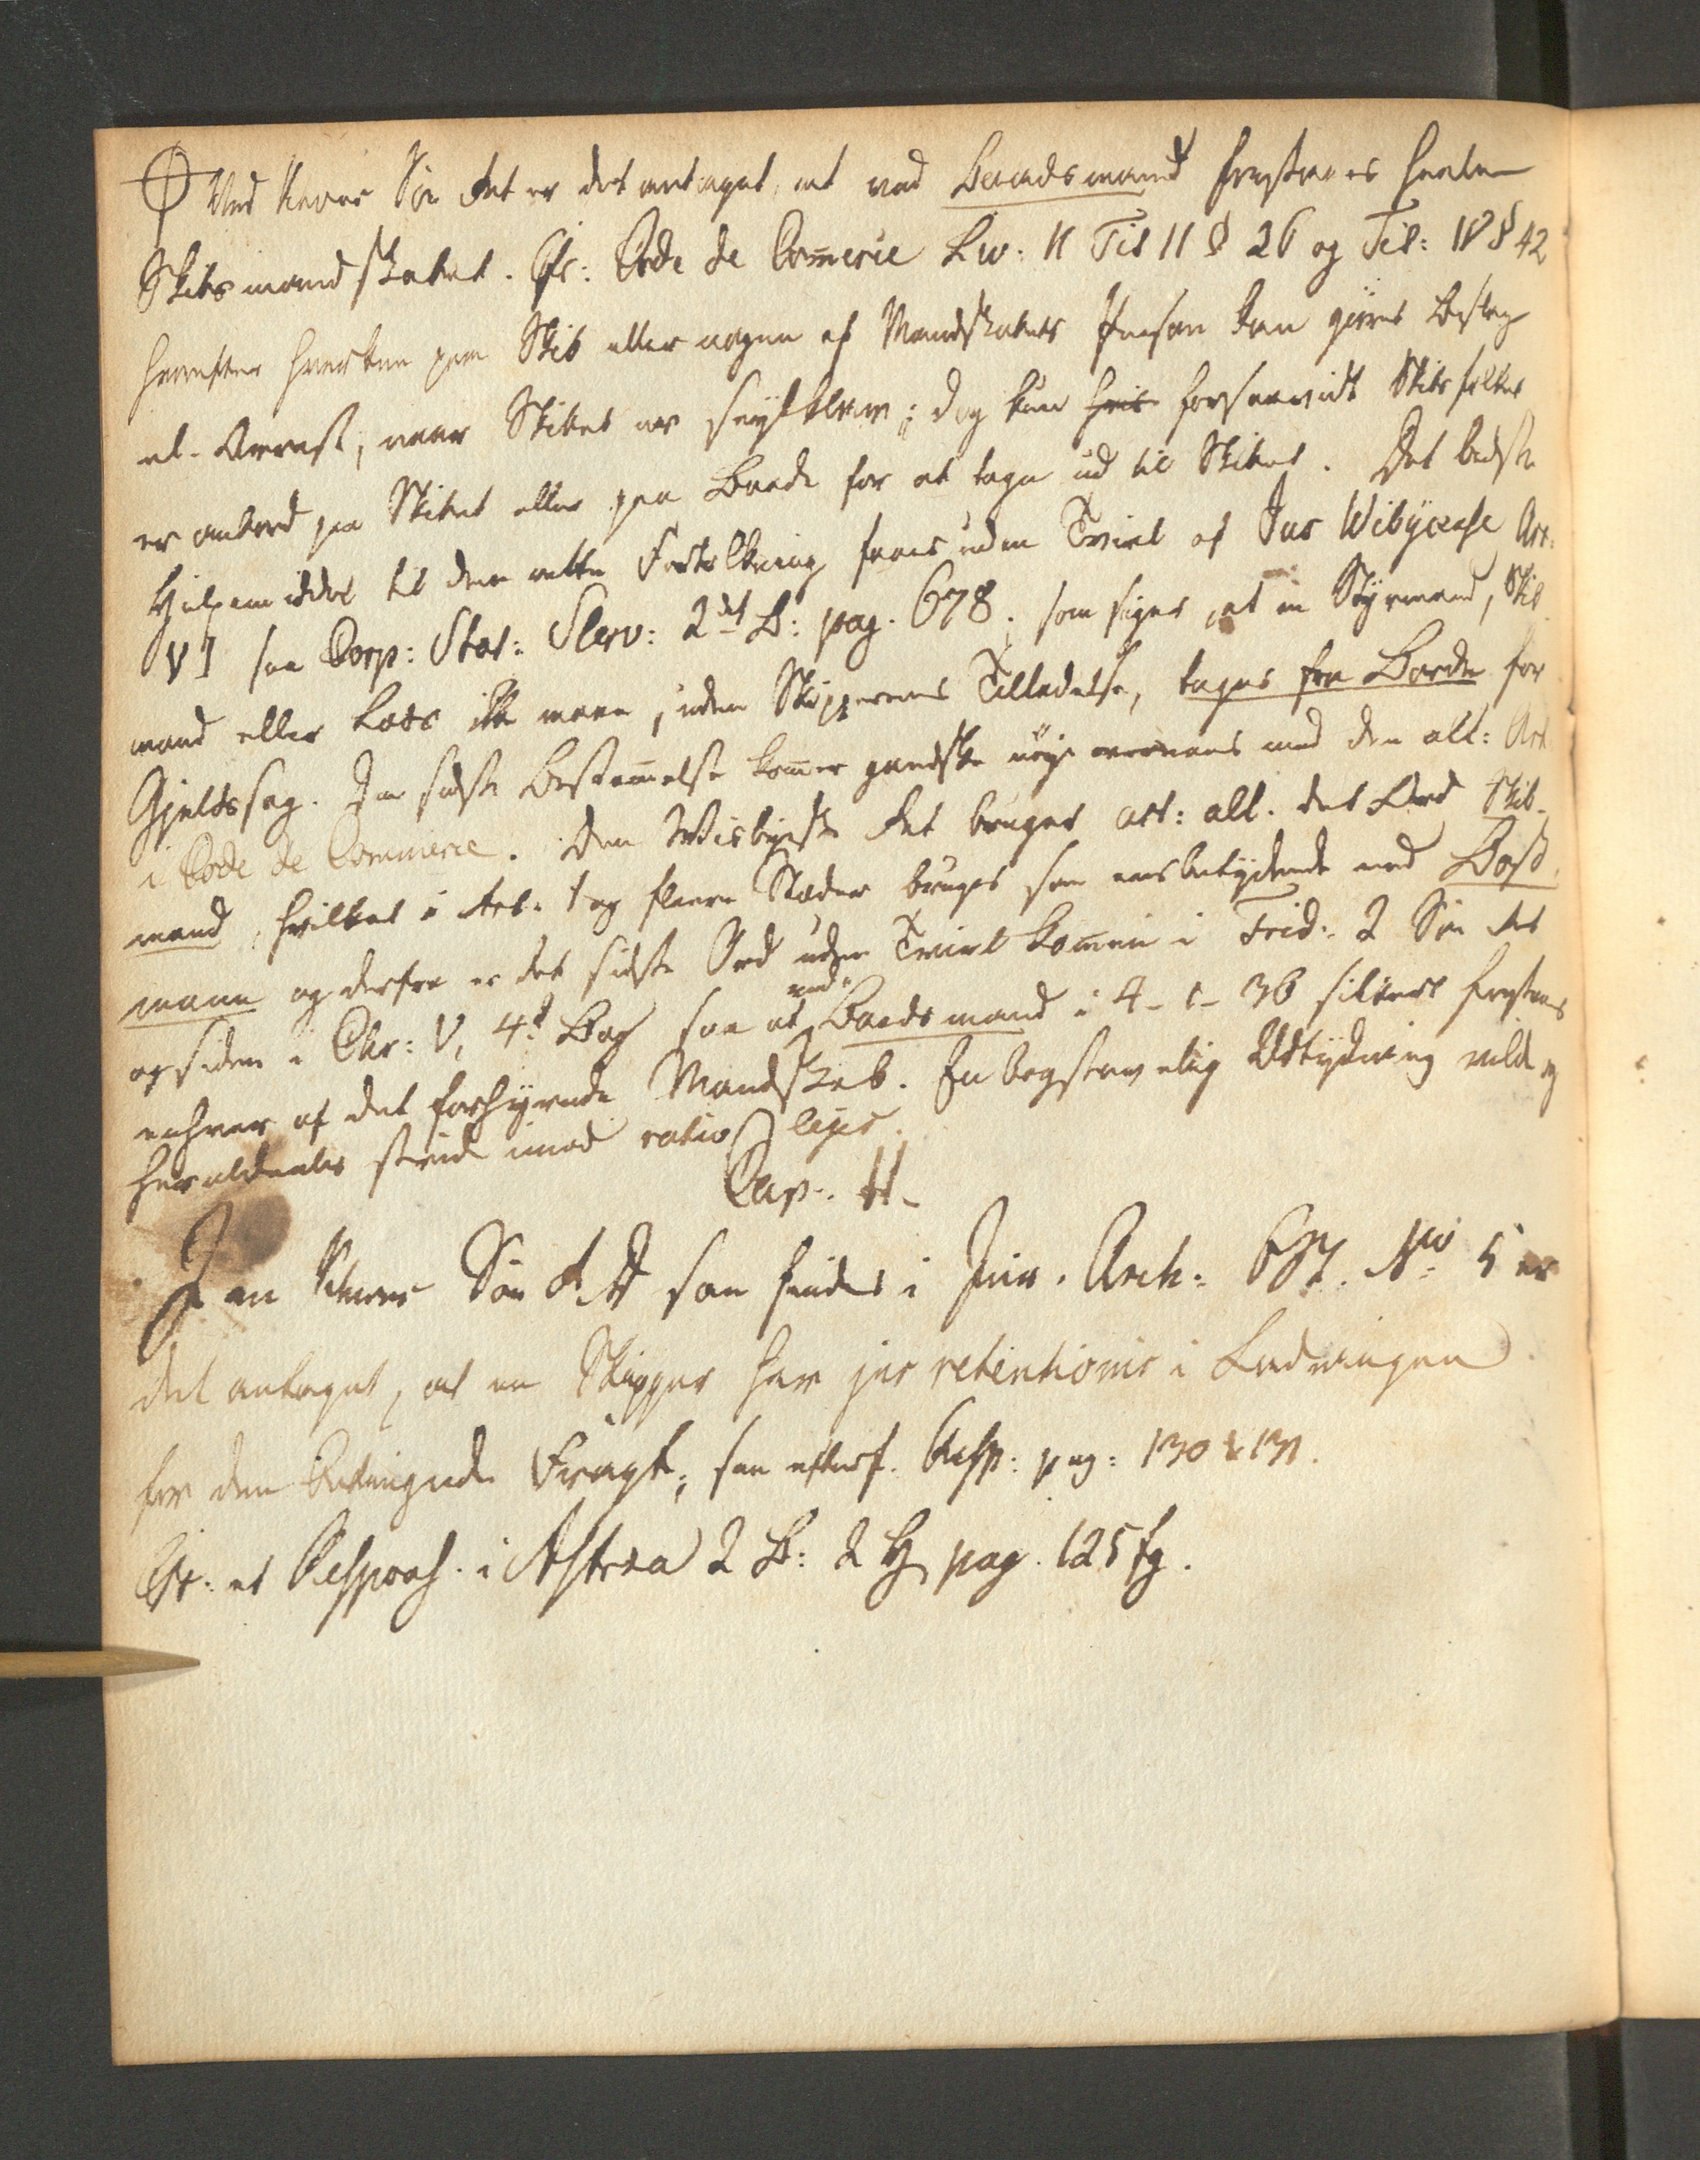 Ved vores Søe Ret er det antaget, at ved Baadsmand forstaaes heele
Skibsmandskabet. Cfr: Code de Commerce Liv: II Tit II § 26 og Tit: IV § 42
hvorefter hverken paa Skib eller nogen af Mandskabets Person kan giøres Beslag
el. Arrest, naar Skibet er seylklar; dog kun forsaavidt Skibsfolket
er ombord paa Skibet eller paa Baade for at tage ud til Skibet. Det bedste
Hjelpemiddel til den rette Fortolkning faaes uden Tvivl af Jus Wibycense Art:
VI saa Corp: Stat: Slesv: 2det B: pag. 678. som siger, at en Styrmand, Skib
mand eller Lods ikke maae, uden Skipperens Tilladelse, tages fra Borde for
Gjeldssag. Den sidste Bestemmelse kommer gandske nøje overeens med den all: Art
i Code de Commerce. Den Wisbyeske Ret bruger art: all. det Ord Skib-
mand, hvilket i Art: 1 og fleere Stæder bruges som eensbetydende med Boß
mann og derfra er det sidste Ord uden Tvivl kommen i Frid: 2 Søe Ret
og siden i Chr: V, 4de Bog saa at ved Baadsmand i 4-1-36 sikkert forstaaes
enhver af det forhyrede Mandskab. En bogstavelig Udtydning vilde og
heraldeeles stride imod ratio legis.
Cap. 4.
I en Søe som findes i Jur. Arch: No 5 er
det antaget, at en Skipper har jus retentionis i Ladningen
for den Fragt; saa efterf. Resp: pag: 130 & 131.
Cfr: et Respons. i Astræa 2 B: 2 H pag. 125 fg.